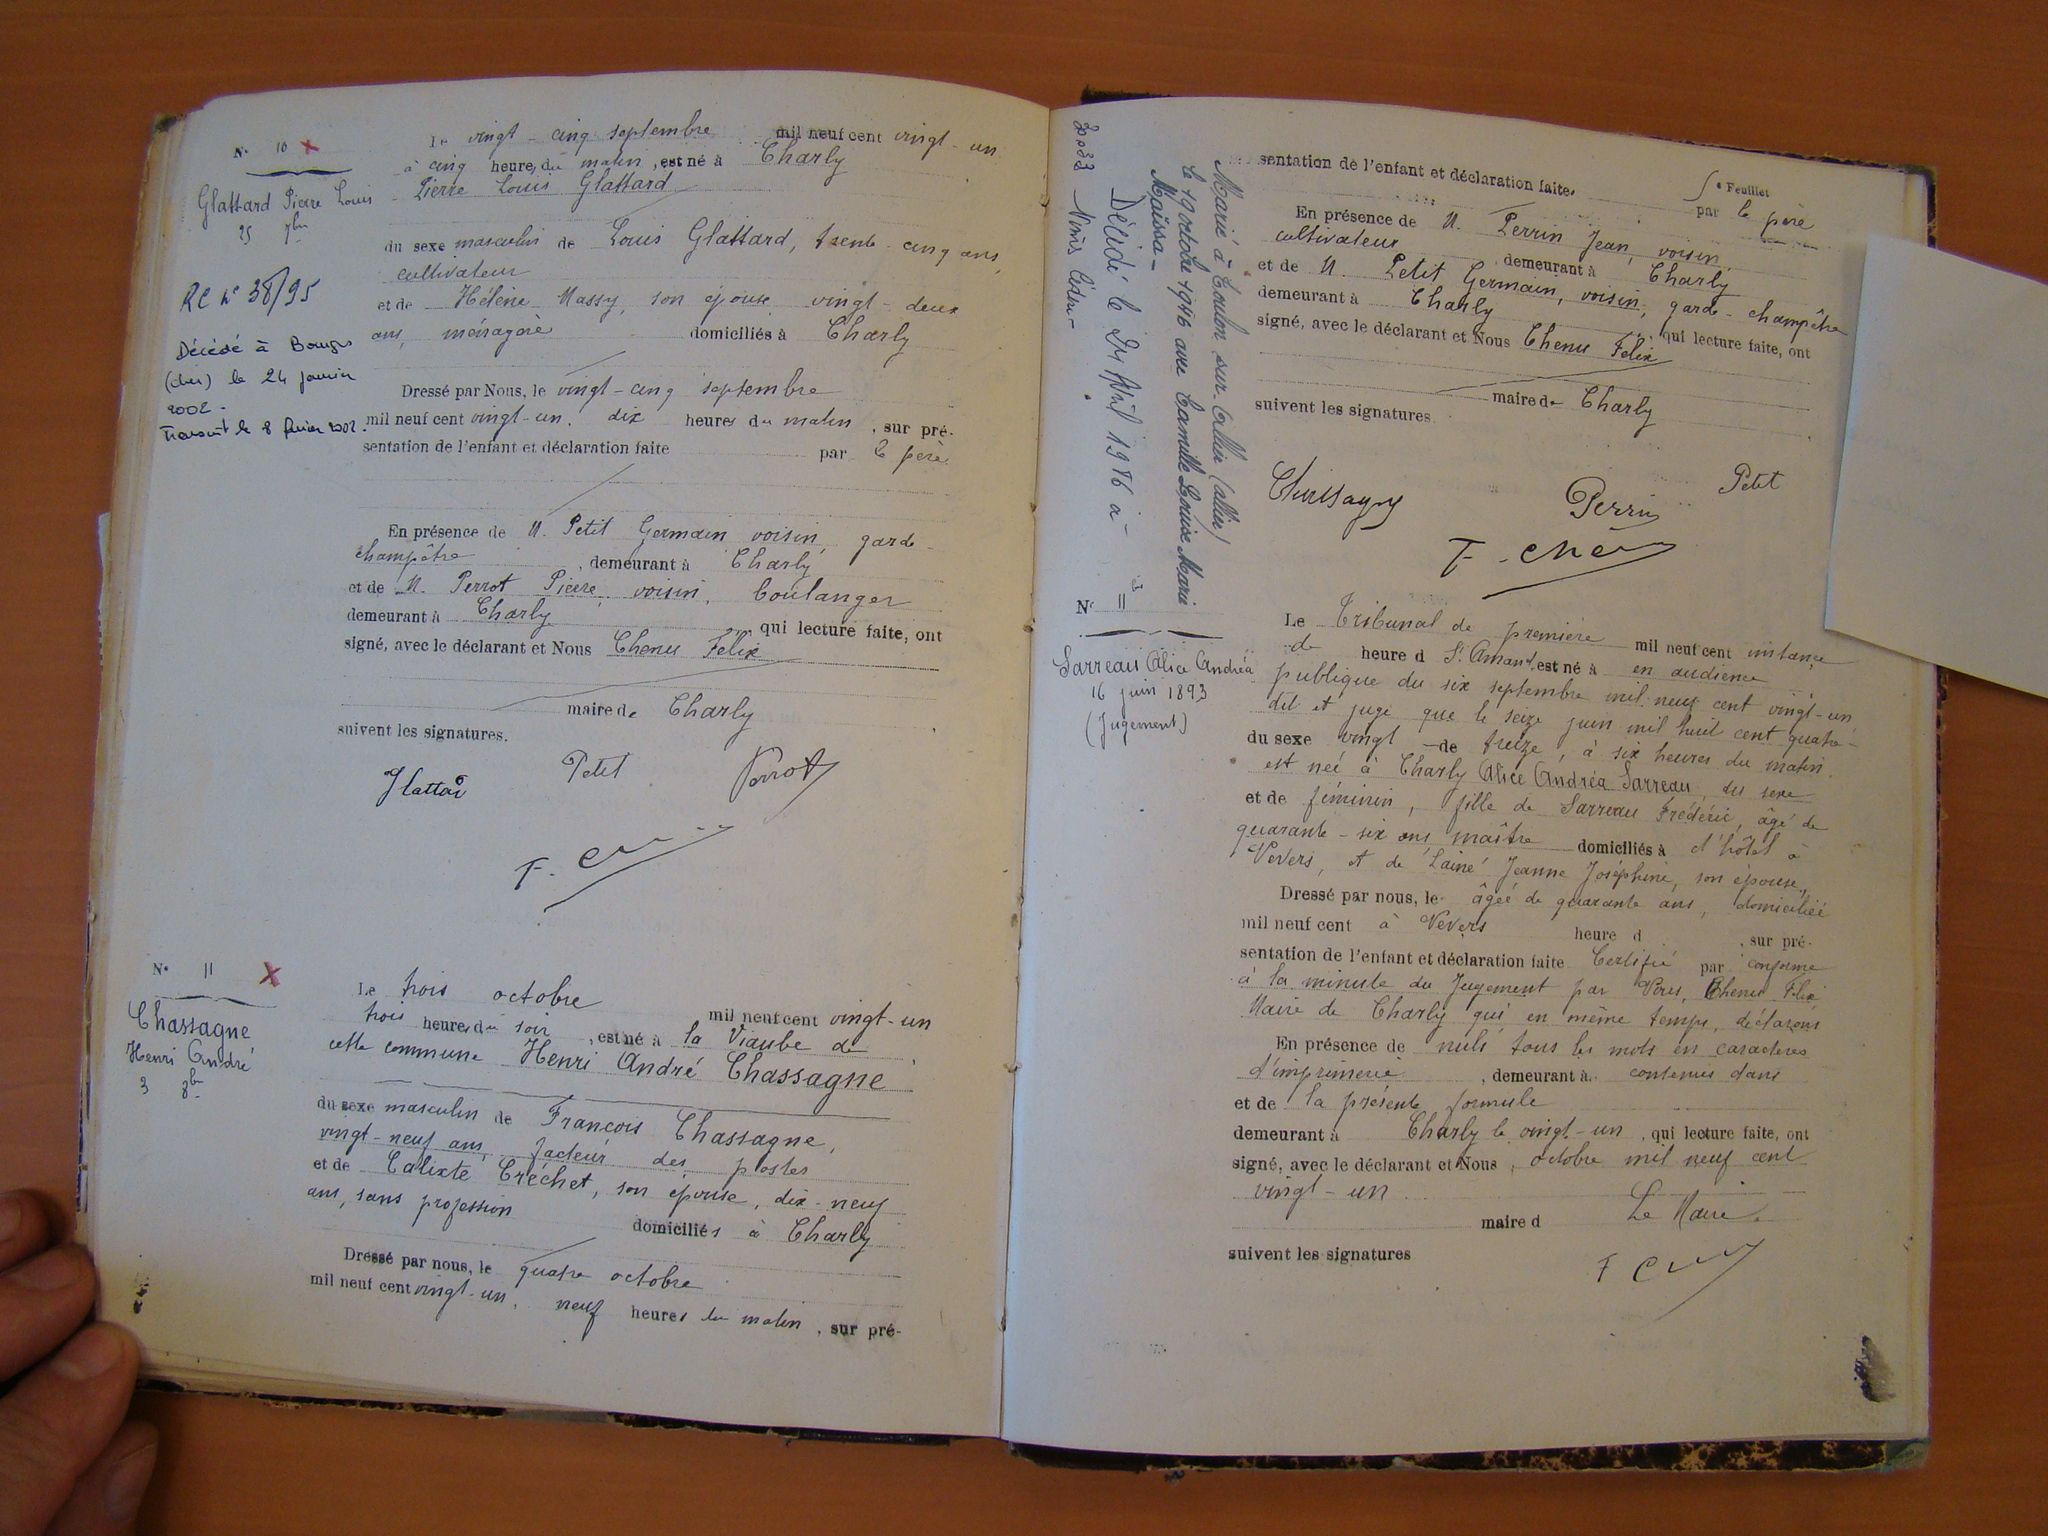 N° 10 x
Glattard Pierre Louis
25 7bre
RC n° 38/95
Décédé à Bourges
(cher) le 24 janvier
2002.
Transcrit le 8 février 2002.
Le vingt-cinq septembre mil neuf cent vingt-un
à cinq heures du matin, est né à Charly
Pierre Louis Glattard
du sexe masculin de Louis Glattard, trente-cinq ans,
cultivateur
et de Hélène Massy, son épouse vingt-deux
ans, ménagère domiciliés à Charly
Dressé par Nous, le vingt-cinq septembre
mil neuf cent vingt-un, dix heures du matin, sur pré-
sentation de l'enfant et déclaration faite par le père
En présence de M. Petit Germain voisin, garde-
champêtre, demeurant à Charly
et de M. Perrot Pierre, voisin, boulanger
demeurant à Charly qui lecture faite, ont
signé, avec le déclarant et Nous Chenu Félix
maire de Charly
suivent les signatures.
Petit Perrot
N° 11 X
Chassagne
Henri André
3 8bre
Le trois octobre mil neuf cent vingt-un
trois heures du soir, est né à la Viaube de
cette commune Henri André Chassagne
du sexe masculin de François Chassagne,
vingt-neuf ans, facteur des postes
et de Calixte Créchet, son épouse, dix-neuf
ans, sans profession domiciliés à Charly
Dressé par nous, le quatre octobre
mil neuf cent vingt-un, neuf heures du matin, sur pré-
sentation de l'enfant et déclaration faite.
5e Feuillet
par le père
En présence de M. Perrin Jean, voisin,
cultivateur demeurant à Charly
et de M. Petit Germain, voisin, garde-champêtre
demeurant à Charly, qui lecture faite, ont
signé, avec le déclarant et Nous Chenu Félix
maire de Charly
suivent les signatures
Chassagne Perrin Petit
Marié à Toulon-sur-Allier (allier)
le 19 octobre 1946 avec Camille Louise Marie
Maussa-
Décédé le 24 Avril 1986 à-
N° 11
Sarreau Alice Andréa
16 juin 1893
(Jugement)
Le Tribunal de première mil neuf cent instance
de heure d St Amand est né à en audience
publique du six septembre mil neuf cent vingt-un
dit et juge que le seize juin mil huit cent quatre-
du sexe vingt-de treize, à six heures du matin
est née à Charly Alice Andréa Sarreau, du sexe
et de féminin, fille de Sarreau Frédéric, âgé de
quarante-six ans, maître domiciliés à d'hôtel à
Nevers, et de Lainé Jeanne Joséphine, son épouse,
Dressé par nous, le âgée de quarante ans, domiciliée
mil neuf cent à Nevers heure d, sur pré-
sentation de l'enfant et déclaration faite Certifié par conforme
à la minute du Jugement par Nous, Chenu Félix
Maire de Charly qui en même temps, déclarons
En présence de nuls tous les mots en caractères
d'imprimerie, demeurant à contenus dans
et de la présente formule
demeurant à Charly le vingt-un, qui lecture faite, ont
signé, avec le déclarant et Nous, octobre mil neuf cent
vingt-un
maire d Le Maire.
suivent les signatures